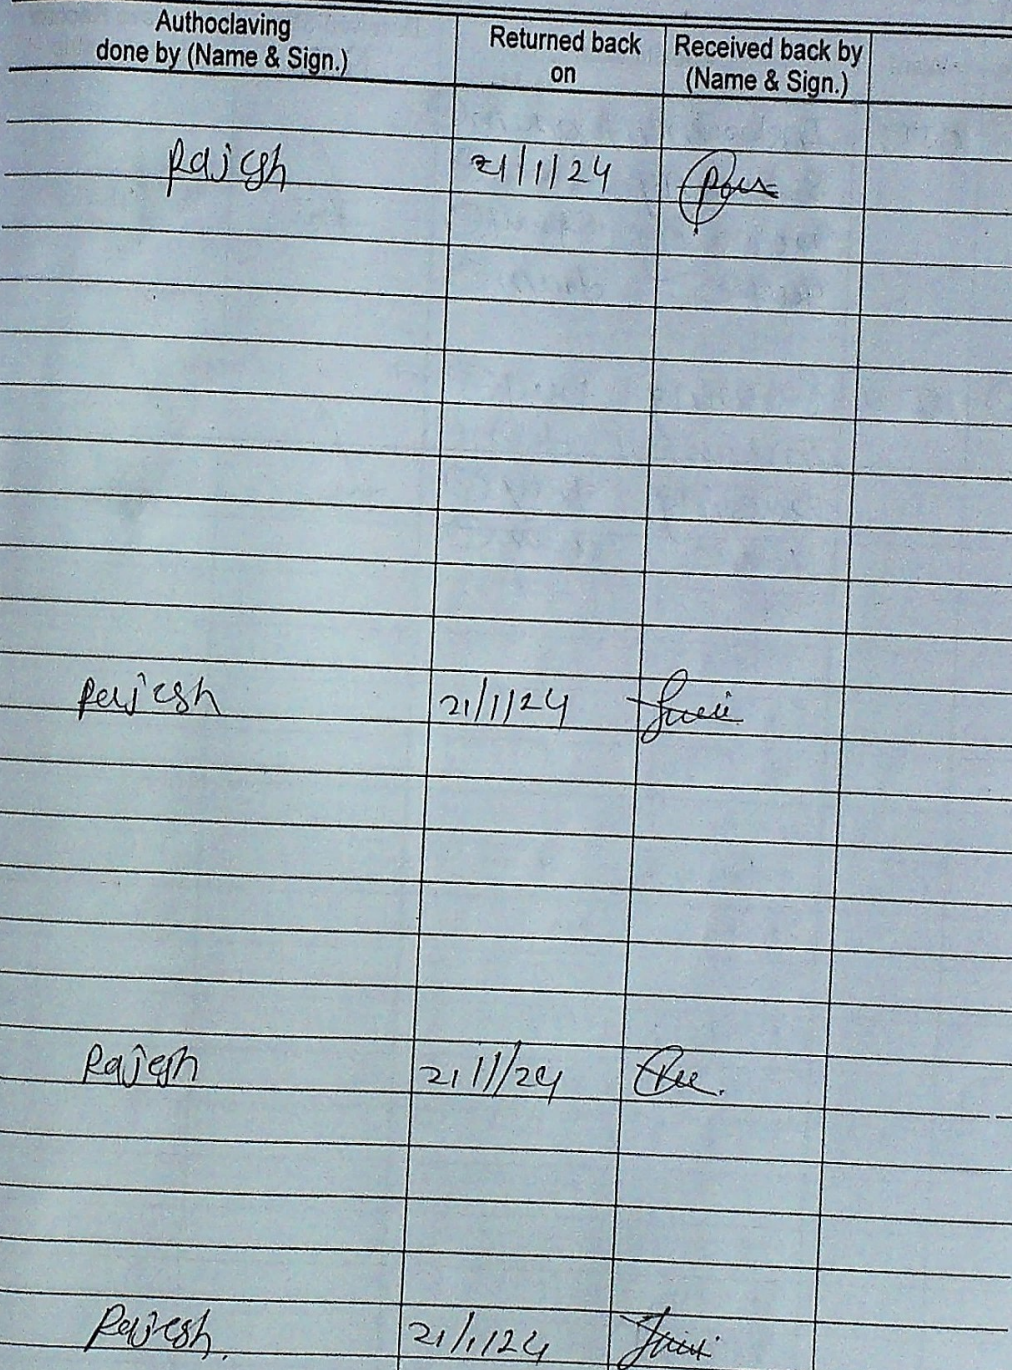 Authoclaving
done by (Name & Sign.)
Returned back
on
Received back by
(Name & Sign.)
Rajesh 21/1/24
Rajesh 21/1/24
Rajesh 21/1/24
Rajesh. 21/1/24